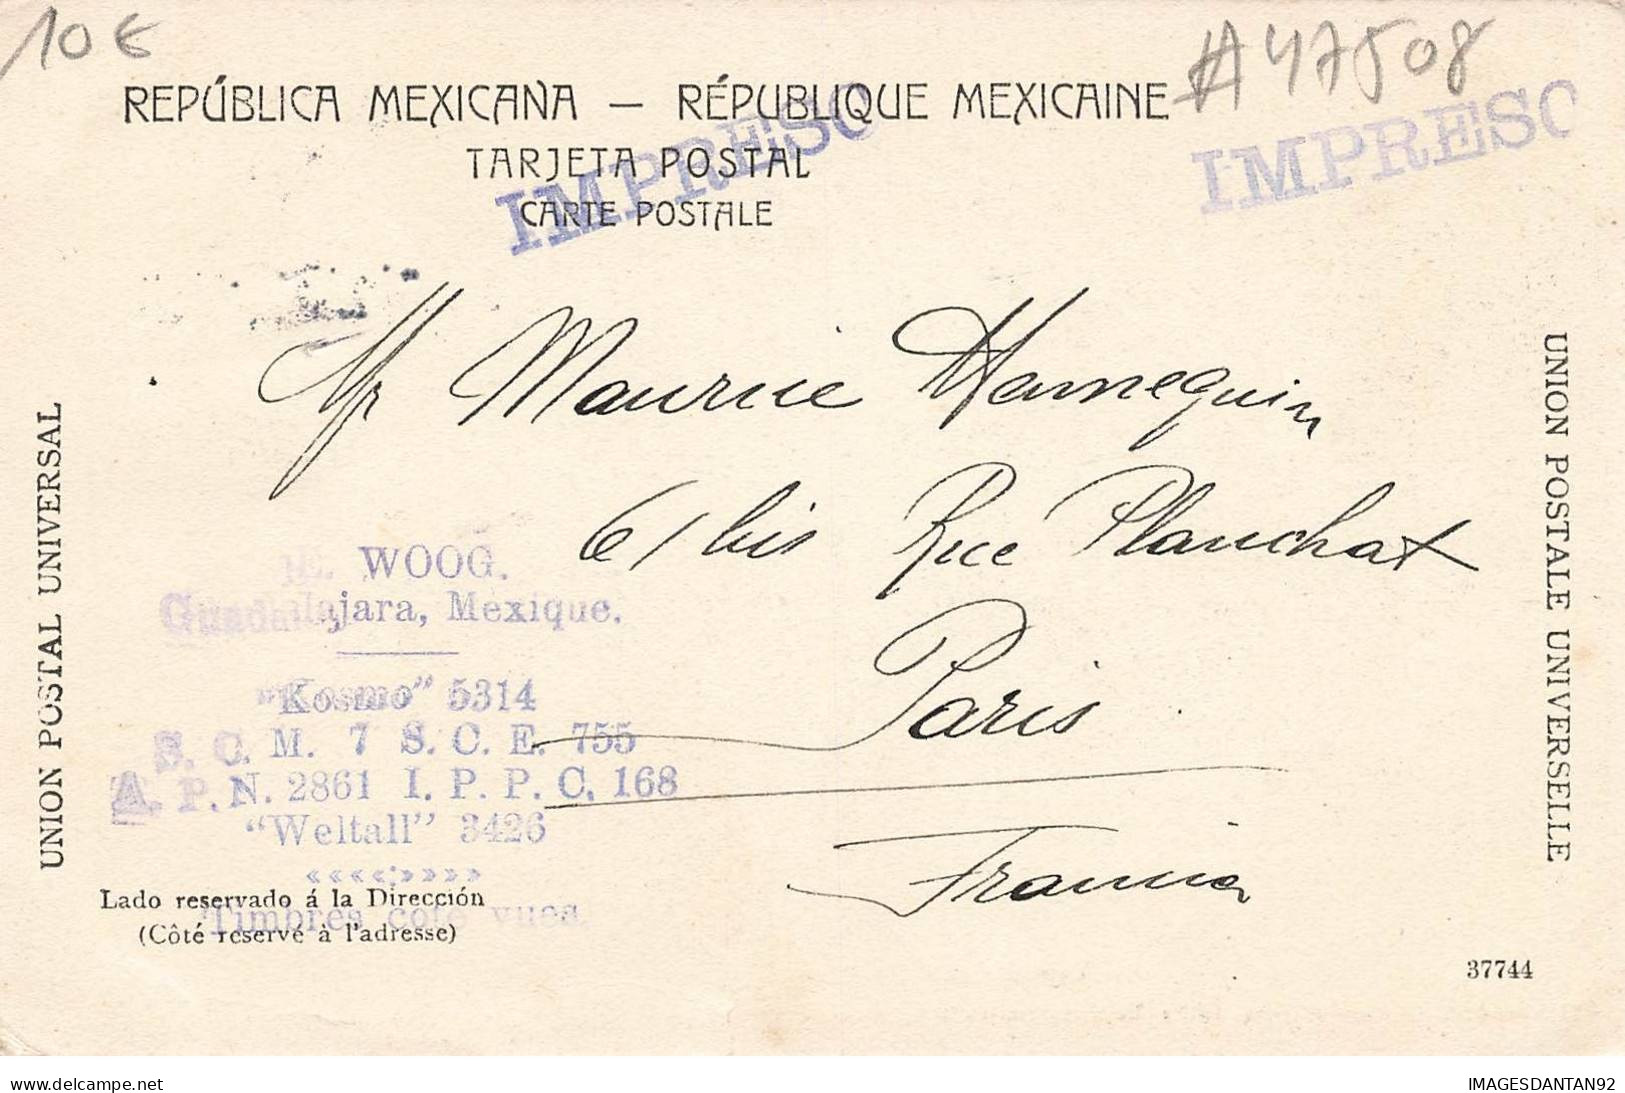 10 €
#47508
REPÚBLICA MEXICANA — RÉPUBLIQUE MEXICAINE
IMPRESO
IMPRESO
TARJETA POSTAL
CARTE POSTALE
Mr Maurice Hannequin
61 bis Rue Planchat
Paris
Francia
UNION POSTAL UNIVERSAL
UNION POSTALE UNIVERSELLE
WOOG.
Guadalajara, Mexique.
"Kosmo" 5314
S. C. M. 7 S. C. E. 755
A. P. N. 2861 I. P. P. C. 168
"Weltall" 3426
««««:»»»»
Lado reservado á la Dirección
Timbres cote vues
(Côté reservé à l'adresse)
37744
delcampe.net
IMAGESDANTAN92